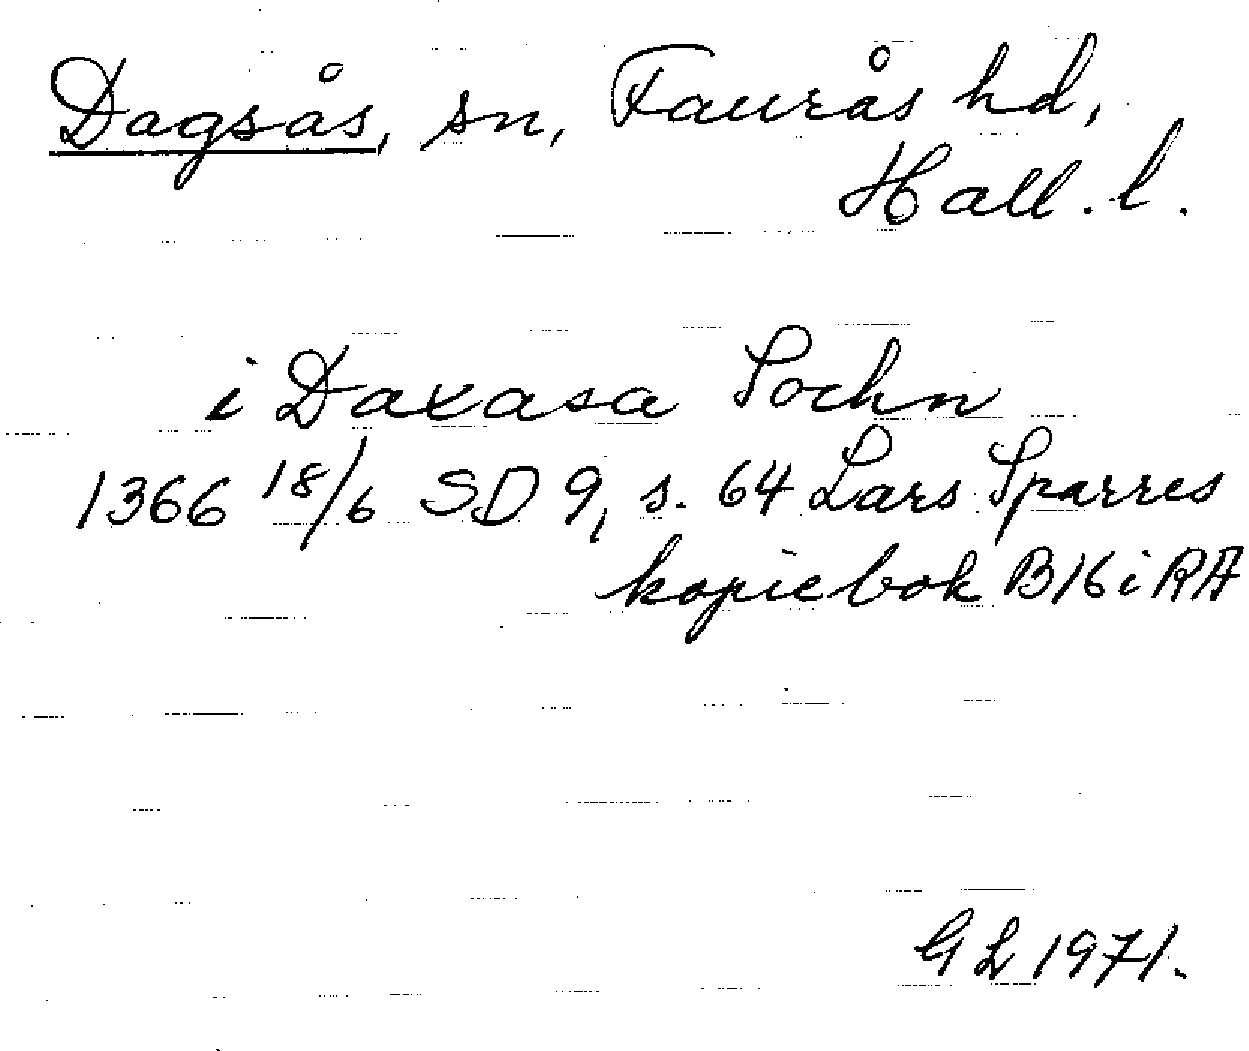 Dagsås, sn, Faurås hd,
Hall. l.
i Daxasa Sochn
1366 18/6 SD 9, s. 64 Lars Sparres
kopiebok B16 i RA
GL 1971.